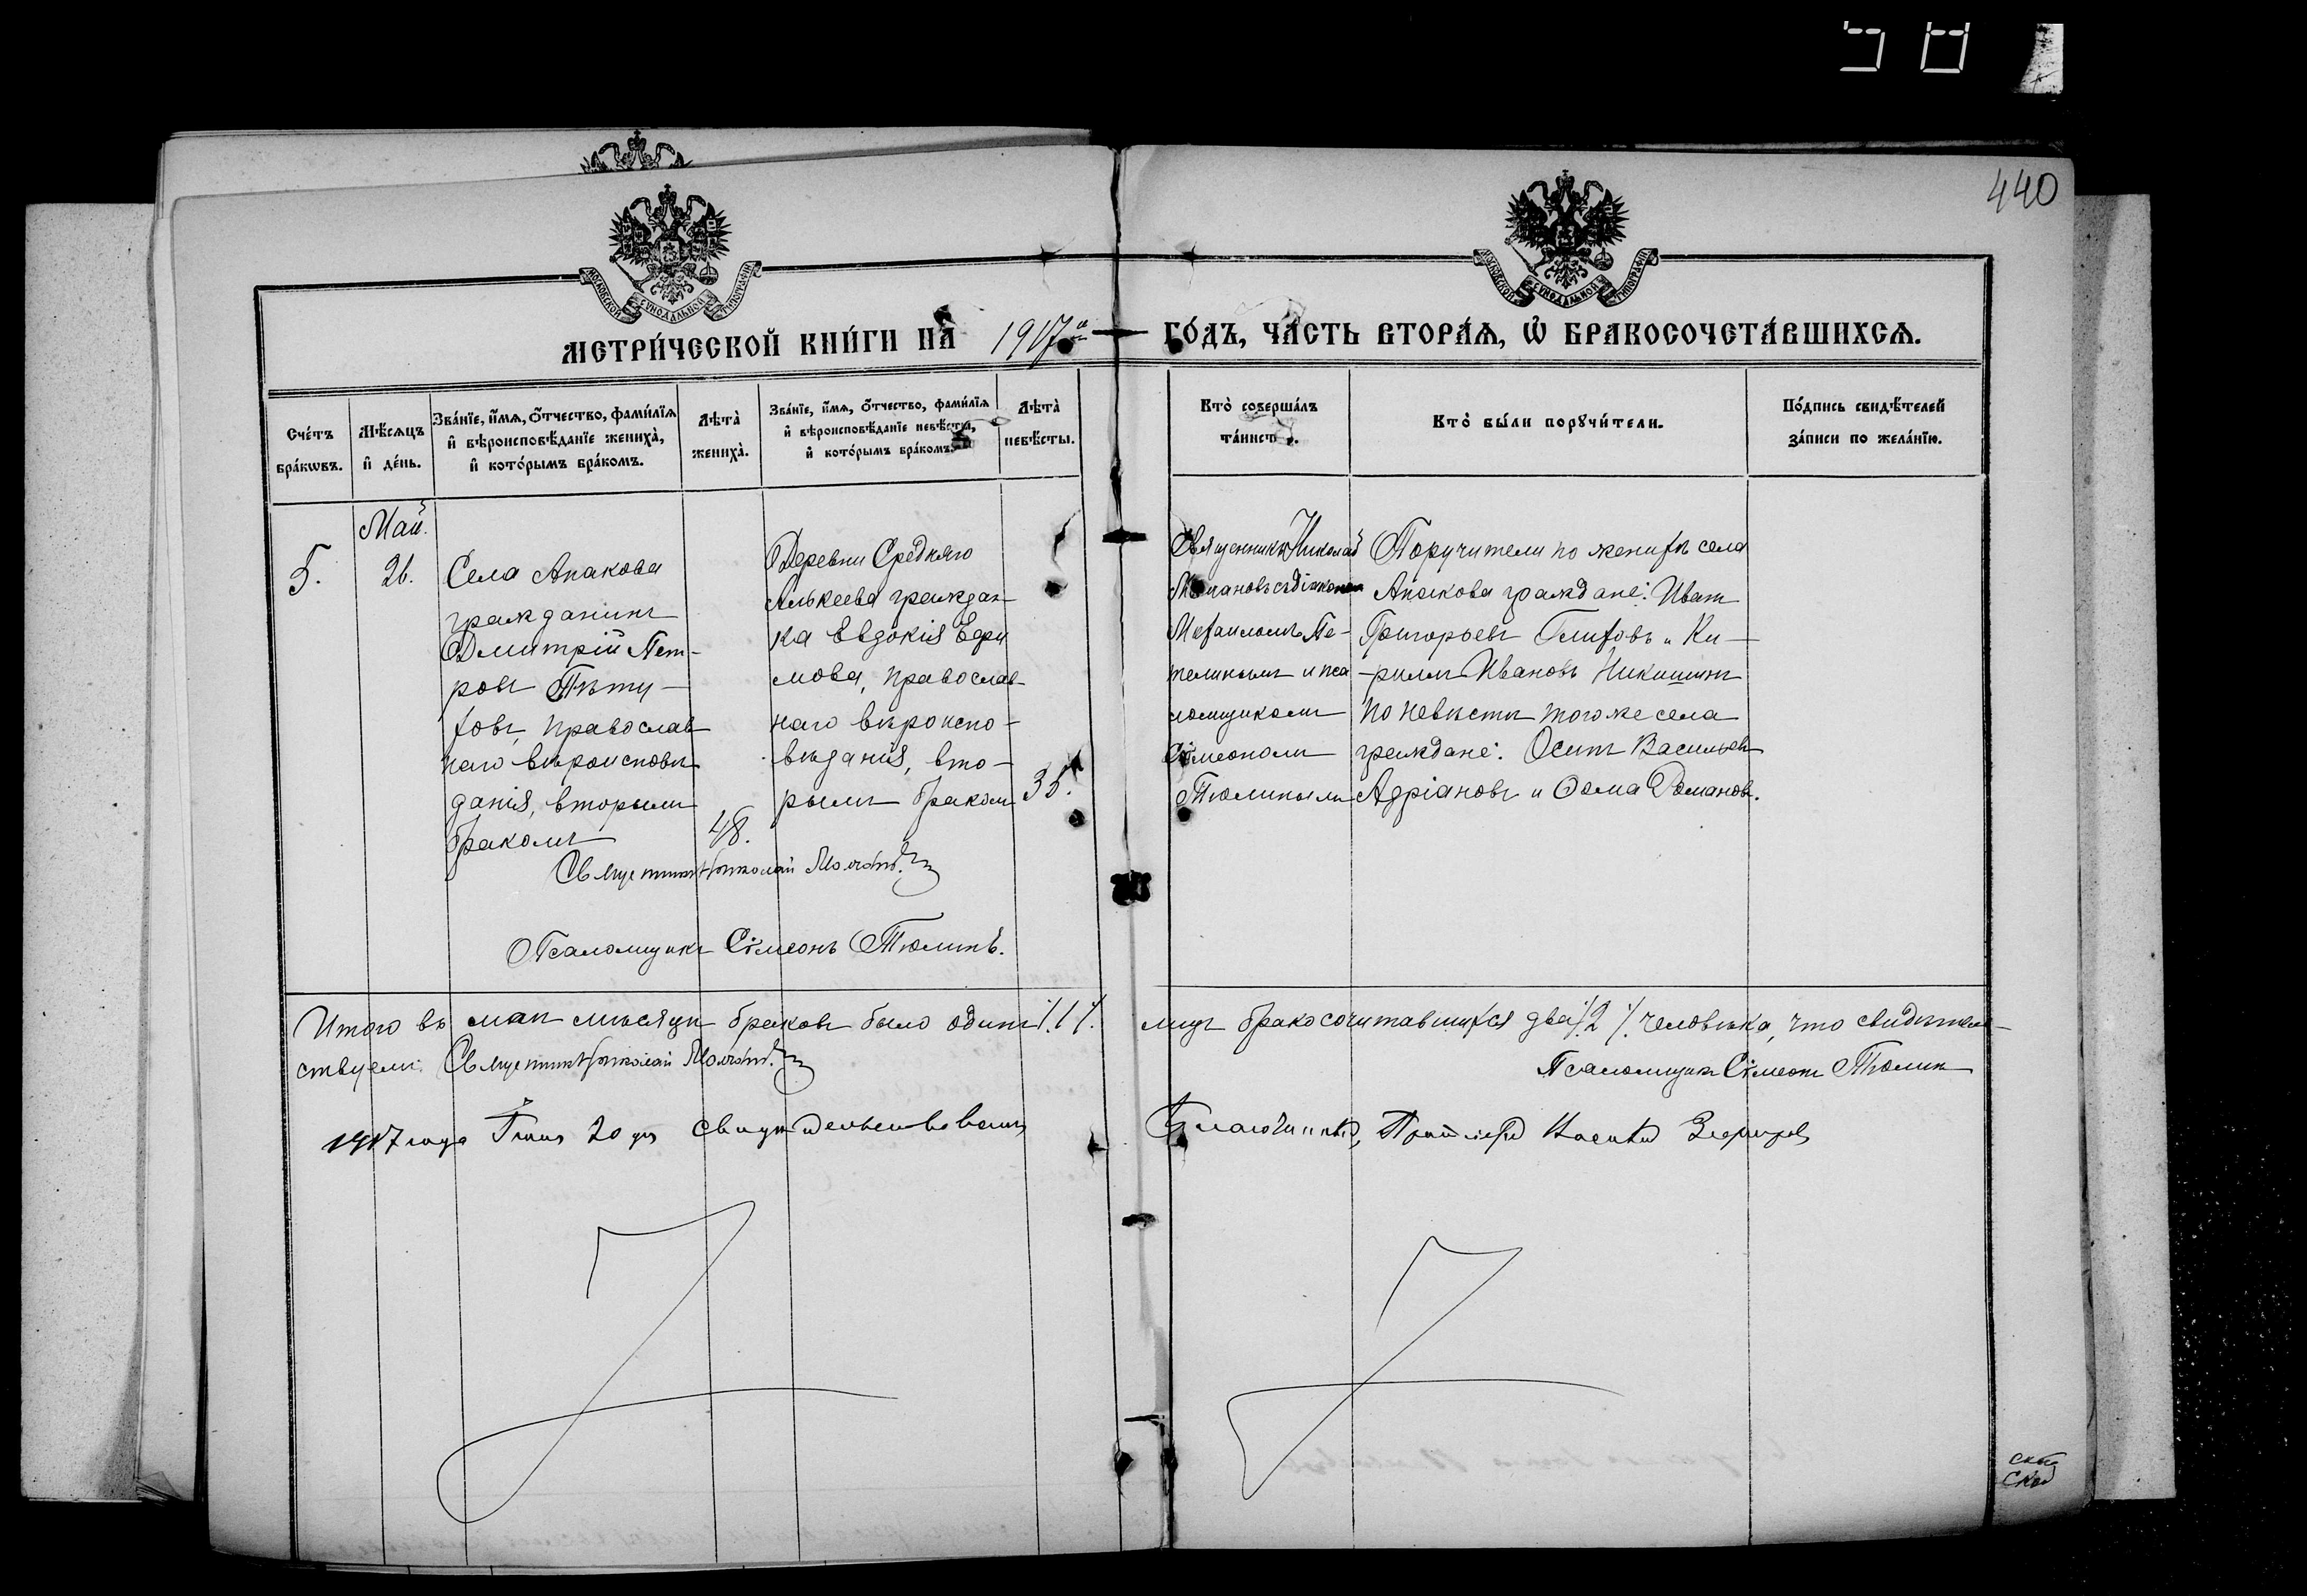 440
МОСКОВСКОЙ СУНОДАЛЬНОЙ ТИПОГРАФІИ
МОСКОВСКОЙ СУНОДАЛЬНОЙ ТИПОГРАФІИ
МЕТРИ́ЧЕСКОЙ КНИ́ГИ НА̀ 1917й ГО́ДЪ, ЧА́СТЬ ВТОРА́Ѧ, Ѽ БРАКОСОЧЕТА́ВШИХСѦ.
Сче́тъ бра́кѡвъ.
Мѣ́сѧцъ и҆ де́нь.
Зва́нїе, и҆́мѧ, ѻ҆́тчество, фами́лїѧ и҆ вѣроисповѣ́данїе жениха̀, и҆ кото́рымъ бра́комъ.
Лѣта̀ жениха̀.
Зва́нїе, и҆́мѧ, ѻ҆́тчество, фами́лїѧ и҆ вѣроисповѣ́данїе невѣ́сты, и҆ кото́рымъ бра́комъ.
Лѣта̀ невѣ́сты.
Кто̀ соверша́лъ та́инст
Кто̀ бы́ли порꙋчи́тели.
По́дпись свидѣ́телей за́писи по жела́нїю.
5.
Май.
26.
Села Апакова
гражданинъ
Дмитрій Пет-
ровъ Пѣту-
ховъ, православ
наго вѣроисповѣ
данія, вторымъ
бракомъ
48.
Деревни Средняго
Алькеева граждан-
ка Евдокія Ефи
мова, православ-
наго вѣроиспо-
вѣданія, вто-
рымъ бракомъ
35.
Священникъ Николай
съ діакономъ
Михаиломъ Пе-
телинымъ и пса
ломщикомъ
Сѵмеономъ
Тюлинымъ
Поручители по женихѣ села
Апакова граждане: Иванъ
Григорьевъ Глиховъ и Ки-
риллъ Ивановъ Никишинъ
по невѣстѣ того же села
граждане: Осипъ Васильевъ
Адріановъ и Ѳома Романовъ.
Священникъ Николай
Псаломщикъ Сѵмеонъ Тюлинъ.
Итого въ маѣ мѣсяцѣ браковъ было одинъ ⁒1⁒. лицъ бракосочитавшихся два ⁒2⁒ человѣка, что свидѣтель-
ствуемъ: Священникъ Николай
Псаломщикъ Сѵмеонъ Тюлинъ
1917 года Іюня 20 дня свидѣтельствовалъ Благочинный, Протоіерей